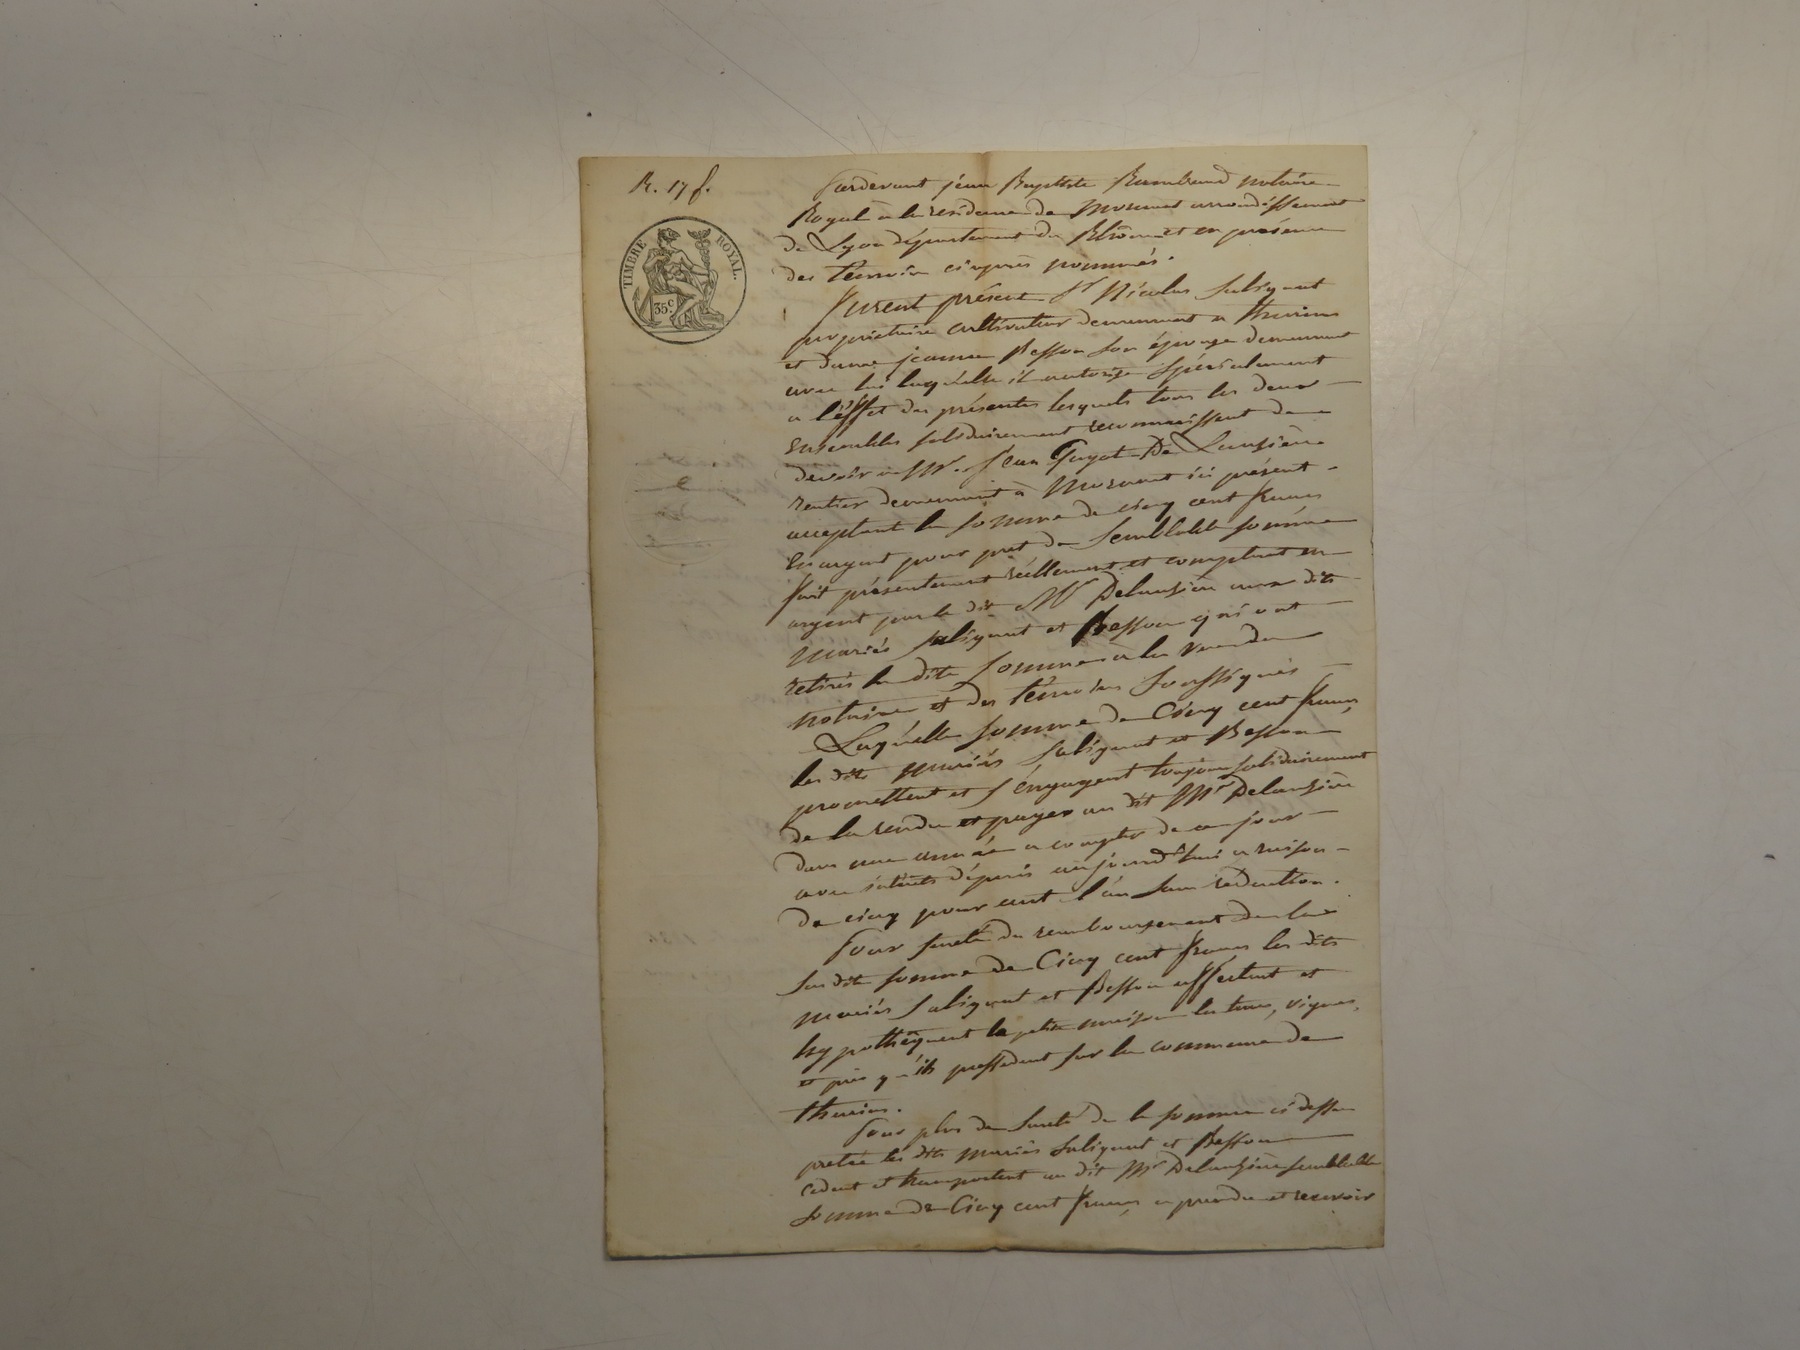 R. 17 f.
TIMBRE ROYAL.
35c.
Pardevant jéan Baptiste notaire
Royal a la residence de Mornant arrondissement
de Lyon département du Rhône et en présence
des témoin ciaprès nommés.
Furent présent Sr Nicolas Salignat
propriétaire cultivateur demeurant a thurins
et dame jeanne Besson son épouze demeurant
avec lui laquélle il autorize spécialement
a l'éffet des présentes lesquels tous les deux
Ensembles solidairement reconnaissent de
devoir a Mr. Jéan Guyot De Lauzière
rentier demeurant à Mornant ici présent
acceptant la somme de cinq cent francs
En argent pour pret de semblable somme
fait présentement réellement et comptant en
argent par le dit Mr Delauzière aux dits
mariés Salignat et Besson qui ont
retirés la dite somme a la vue du
notaire et des témoins soussignés
Laquélle somme de Cinq cent francs,
les dits mariés Salignat et Besson
promettent et s'éngagent toujour solidairement
de la rendre et payer au dit Mr Delauzière
dans une année a compter de ce jour
avec intérêts dépuis aujourd'hui a raison
de cinq pour cent l'an sans réduction.
Pour sureté du remboursement de la
sus dite somme de Cinq cent francs les dits
mariés Salignat et Besson affectent et
hypothéquent la petite maison la terre, vignes,
et près qu'ils possedent sur la commune de
thurins.
Pour plus de sureté de la somme ci dessus
pretée les dits mariés Salignat et Besson
cedent et transportent au dit Mr Delauzière semblable
somme de Cinq cent francs a prendre et recevoir